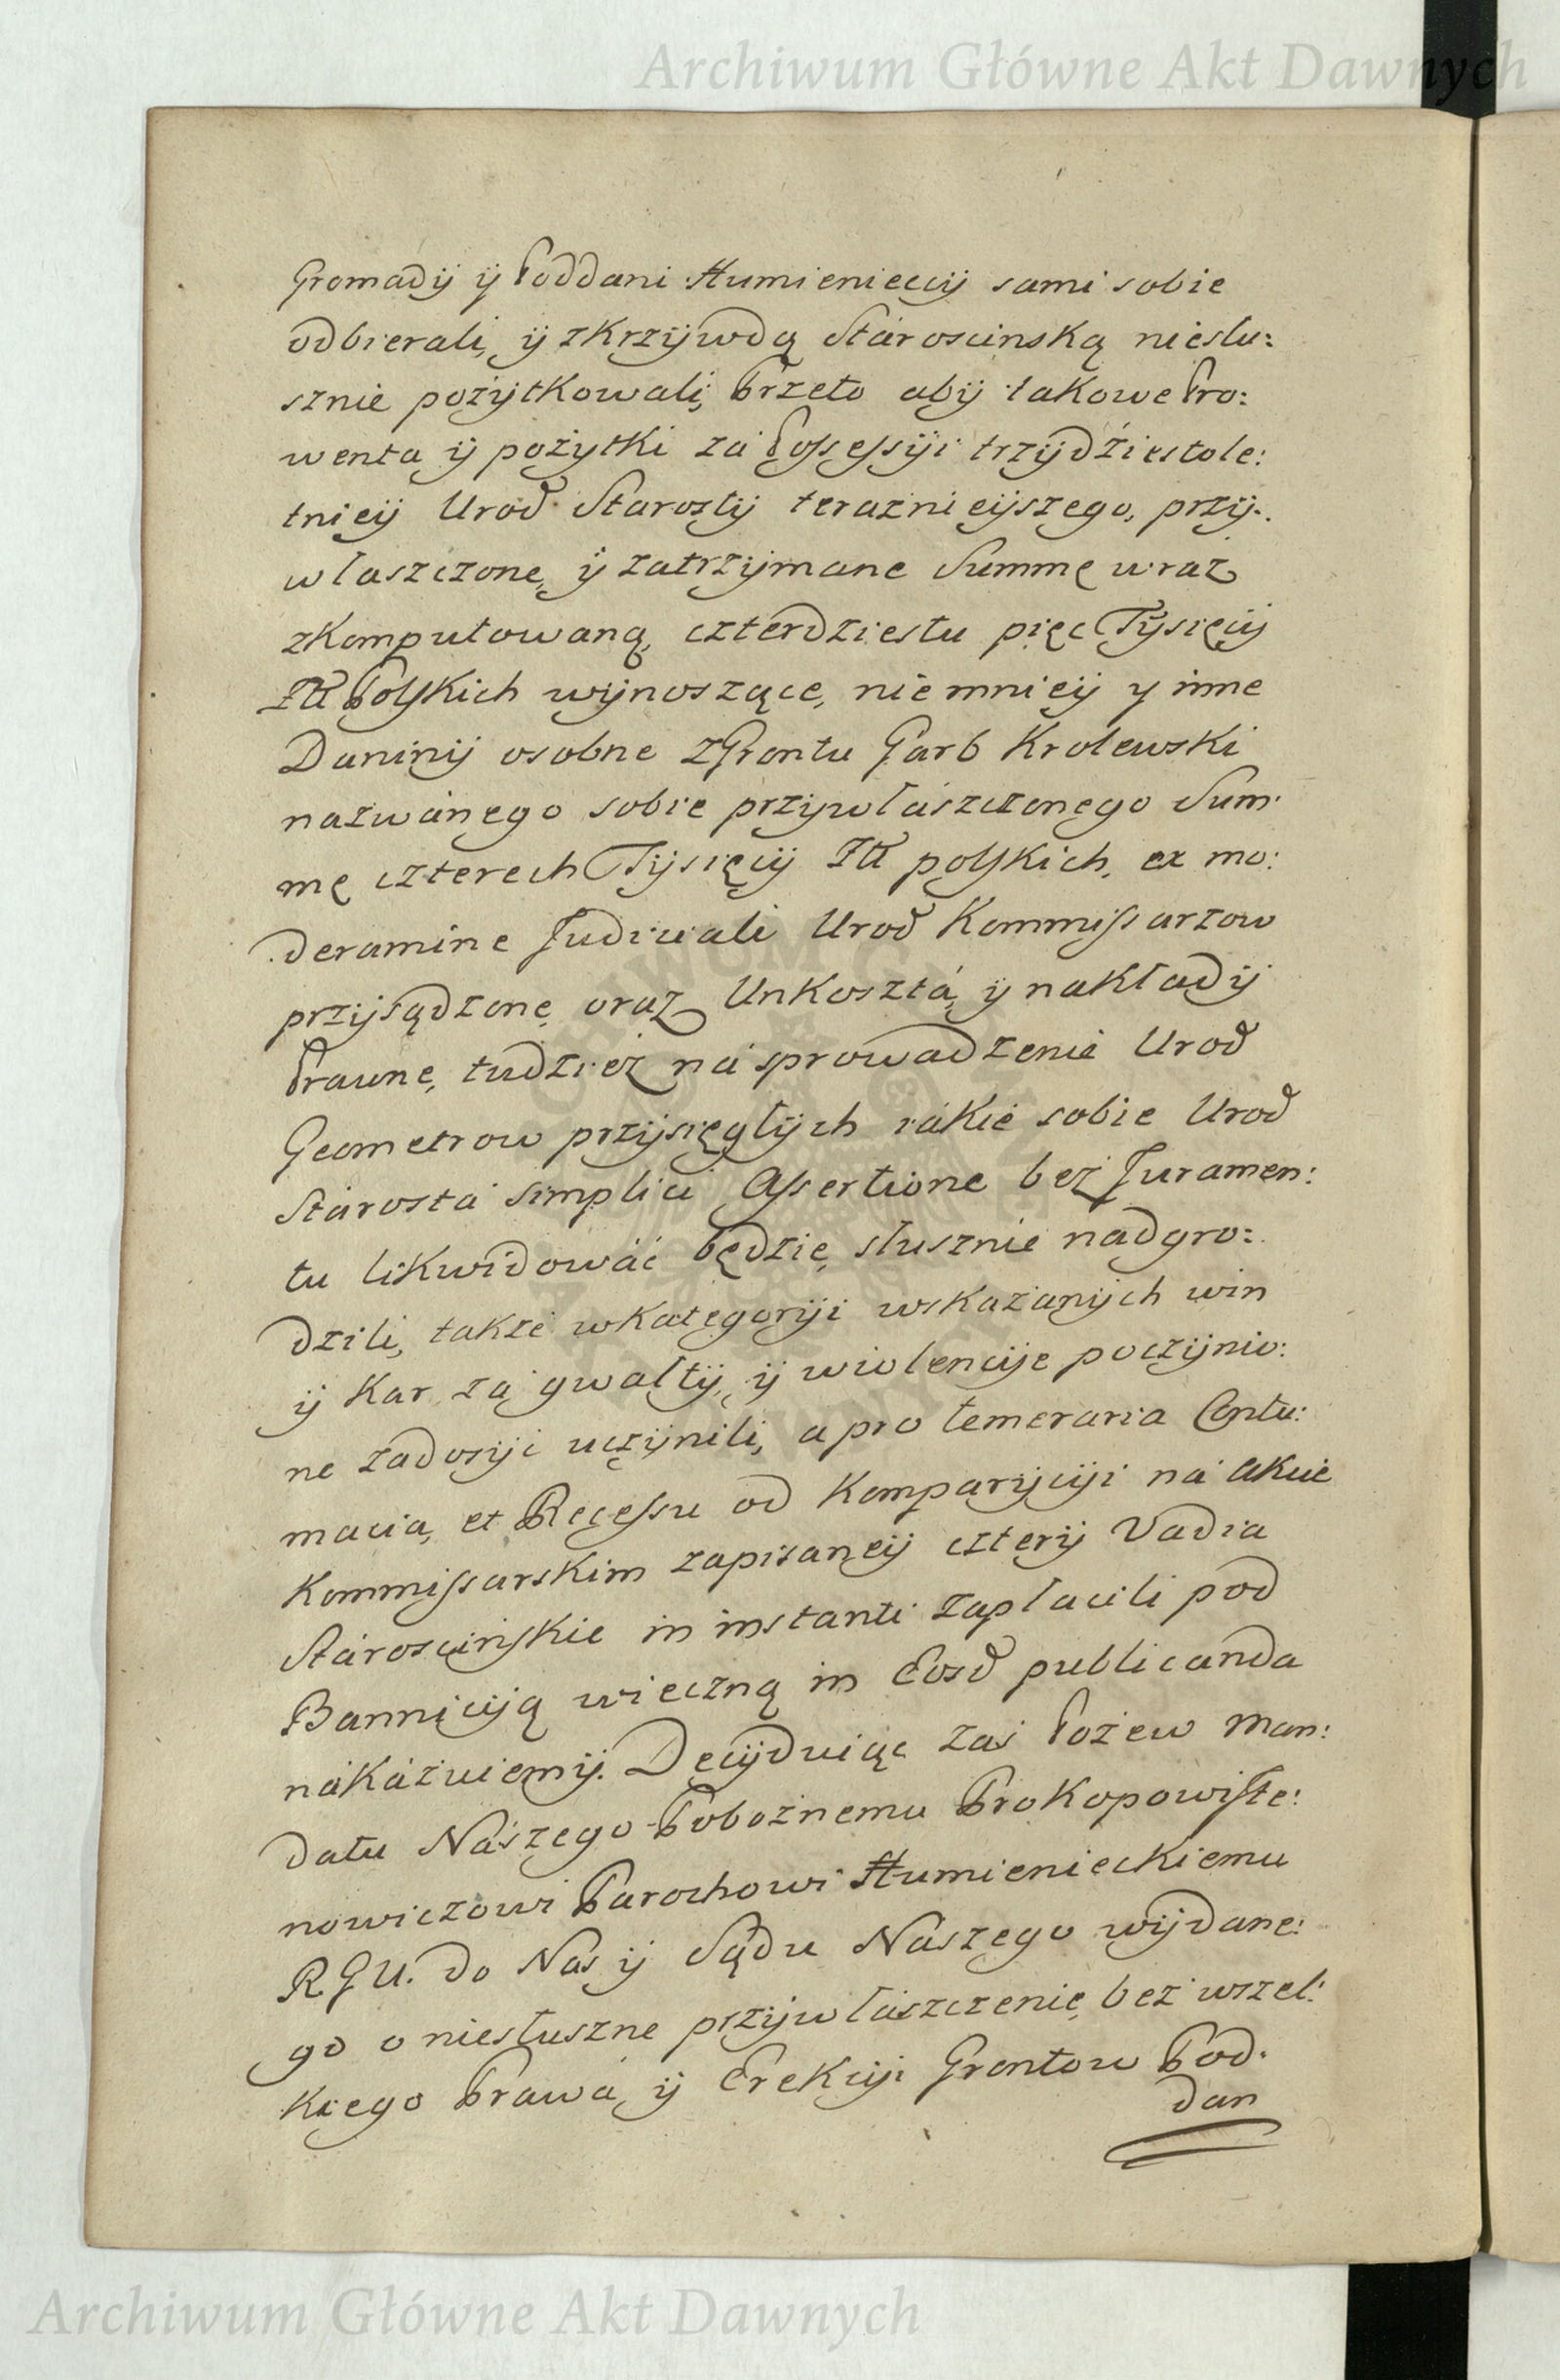 Archiwum Główne Akt Dawnych
Gromadÿ ÿ Poddani Humienieccÿ sami sobie
odbierali, ÿ zKrzÿwdą Stárościnską nieslu:
sznie pożÿtkowali, Przeto abÿ takowe Pro:
wenta ÿ pożytki zá Possessÿi trzÿdźiestole:
tnieÿ Urod Starostÿ teraznieÿszego, przÿ:
właszczone, ÿ zatrzÿmane Summę wraz
zKomputowaną, czterdziestu pięc Tÿsięcÿ
Złł Polskich wÿnoszące, niemnieÿ y inne
Daninÿ osobne zGrontu Garb Krolewski
nazwánego sobie przÿwłászczonego Sum:
mę czterech Tÿsięcÿ Złł polskich, ex mo:
deramine Judiciali Urod Kommissarzow
przÿsądzone, oraz Unkosztá, ÿ nakładÿ
Prawne, tudzież ná sprowadzenie Urod
Geometrow przÿsięgłÿch iákie sobie Urod
Stárosta simplici Assertione bez Juramen:
tu likwidowáć będzie, słusznie nadgro:
dzili, także wkategorÿi wskazanÿch win
ÿ Kar zá gwałtÿ, ÿ wiolencÿe poczÿnio:
ne zadosÿć uczÿnili, a pro temeraria Contu:
macia, et Recessu od Komparÿcÿi ná Akcie
Kommissarskim zapisaneÿ czterÿ Vadia
Stárościńskie in instanti zapłacili pod
Bannicÿą wieczną in Eosd publicanda
nákázuiemÿ. Decÿduiąc zaś Pozew Man:
datu Nászego Pobożnemu Prokopowi Ste:
nowiczowi Parochowi Humienieckiemu
R. G. U. do Nas ÿ Sądu Nászego wÿdane:
go o niesłuszne przÿwłászczenie, bez wszel:
kiego Práwa, ÿ Erekcÿi Grontow Pod:
dan
Archiwum Główne Akt Dawnych